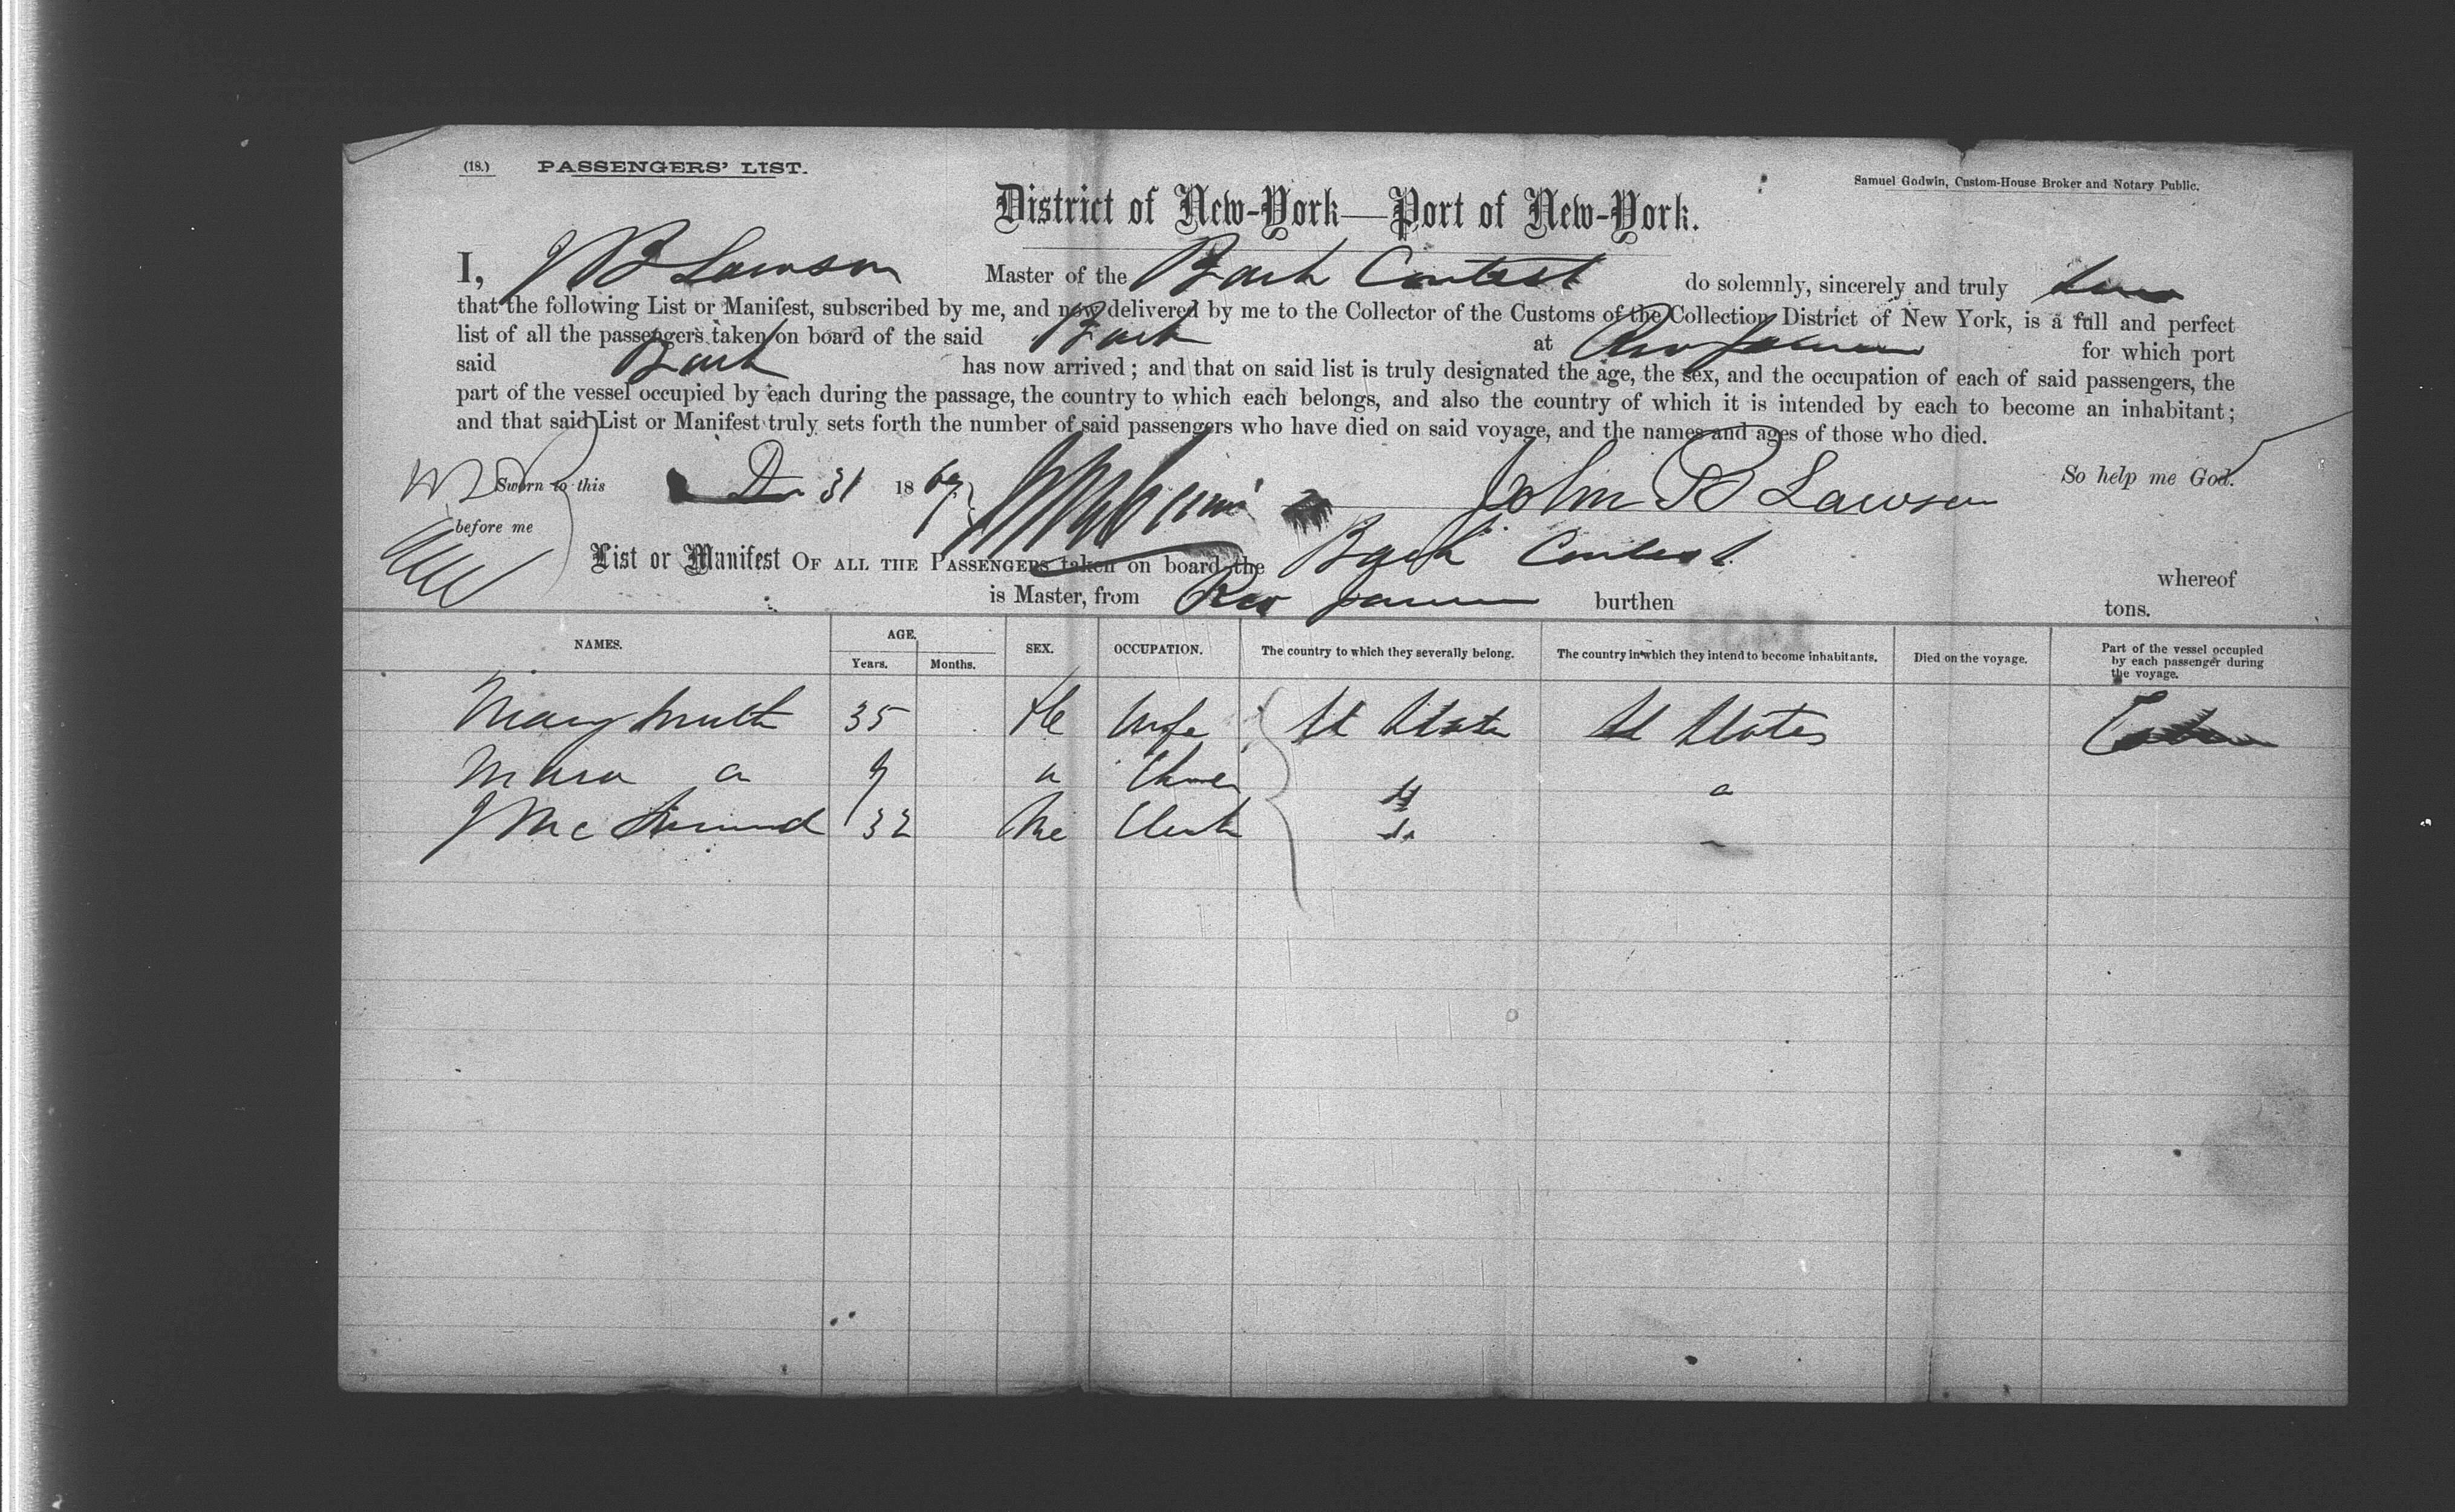 (18.) PASSENGERS' LIST.
Samuel Godwin, Custom-House Broker and Notary Public.
District of New-York—Port of New-York.
I, J B Lawson Master of the Bark Contest do solemnly, sincerely and truly
that the following List or Manifest, subscribed by me, and now delivered by me to the Collector of the Customs of the Collection District of New York, is a full and perfect
list of all the passengers taken on board of the said Bark at Rio Janeiro for which port
said Bark has now arrived; and that on said list is truly designated the age, the sex, and the occupation of each of said passengers, the
part of the vessel occupied by each during the passage, the country to which each belongs, and also the country of which it is intended by each to become an inhabitant;
and that said List or Manifest truly sets forth the number of said passengers who have died on said voyage, and the names and ages of those who died.
So help me God.
Sworn to this Dec 31 1869 John B Lawson
before me
List or Manifest OF ALL THE PASSENGERS taken on board the Bark Contest whereof
is Master, from Rio Janeiro burthen tons.
NAMES. AGE. Years. Months. SEX. OCCUPATION. The country to which they severally belong. The country in which they intend to become inhabitants. Died on the voyage. Part of the vessel occupied by each passenger during the voyage.
Mary Smith 35 Fe Wife U States U States
9
J Mc 32 Me Clerk